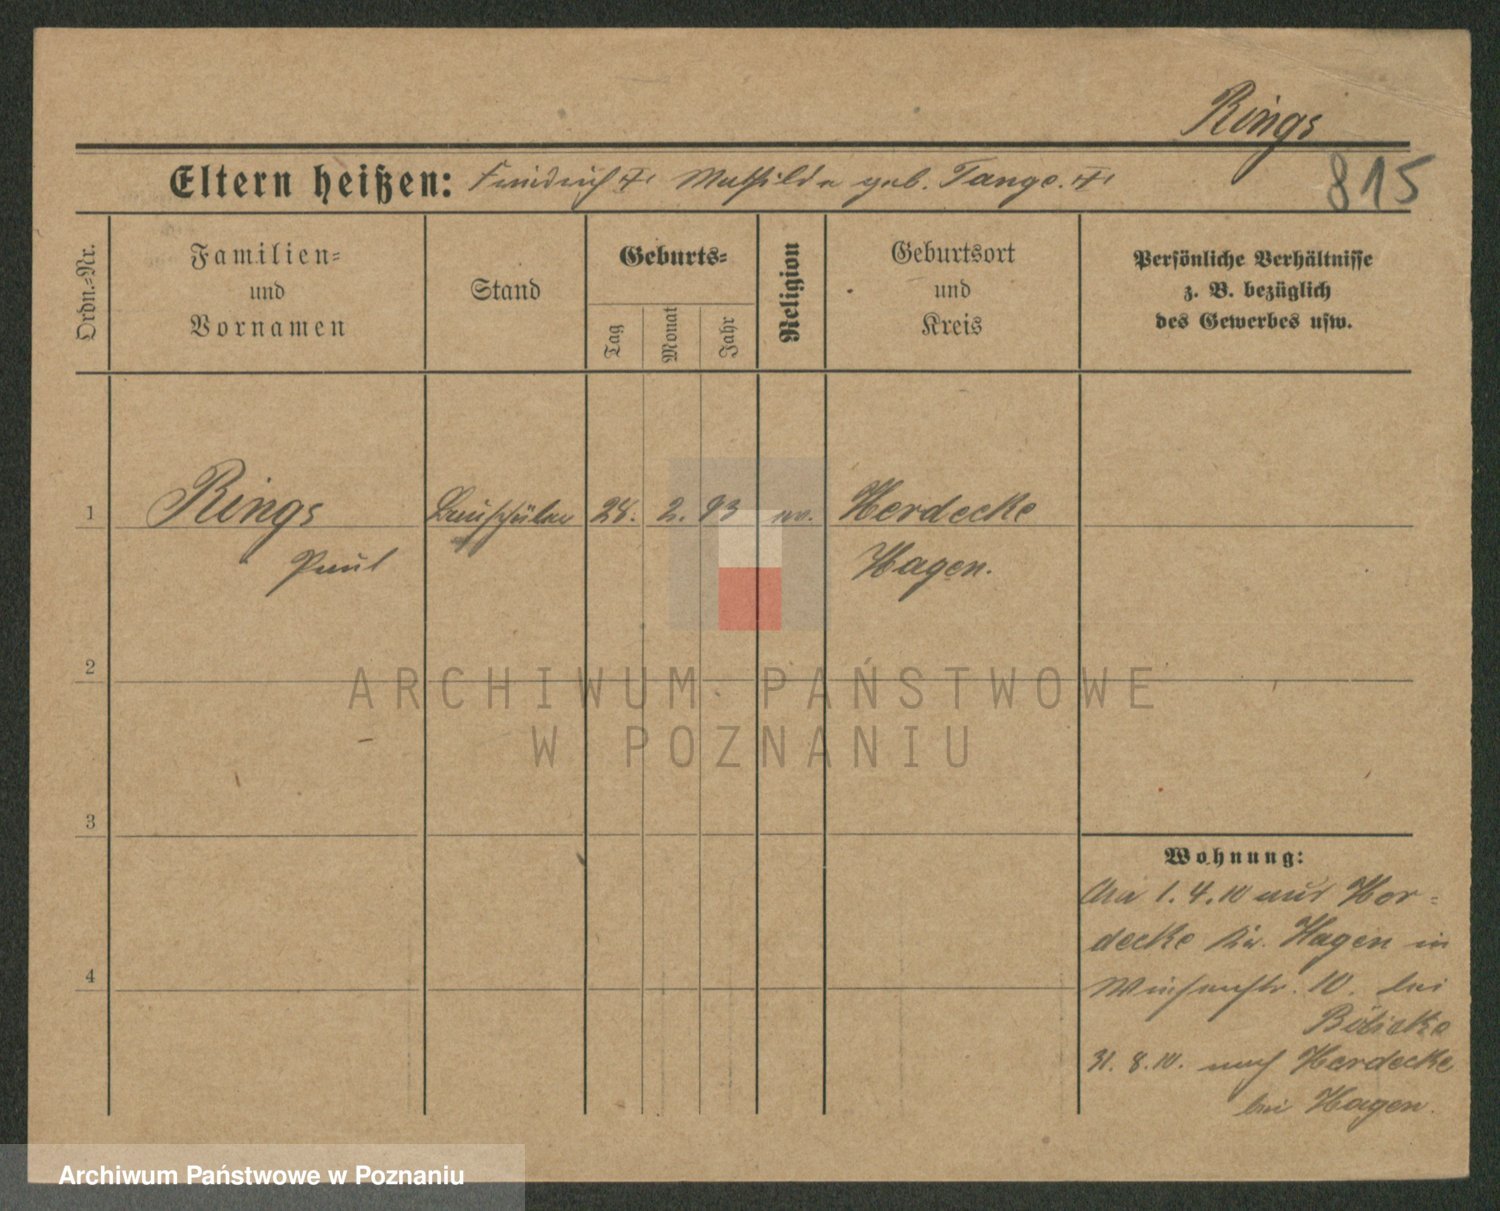 Rings
815
Eltern heißen: Friedrich †. Mathilde geb. Tange. †.
Ordn.=Nr.
Familien=
und
Vornamen
Stand
Geburts=
Tag
Monat
Jahr
Religion
Geburtsort
und
Kreis
Persönliche Verhältnisse
z. B. bezüglich
des Gewerbes usw.
1
Rings
Bauschüler
28. 2. 93
ev.
Herdecke
Paul
Hagen.
2
ARCHIWUM PAŃSTWOWE
W POZNANIU
3
Wohnung:
1.4.10 aus Her=
decke Kr. Hagen in
10. bei
4
31. 8. 10. nach Herdecke
bei Hagen.
Archiwum Państwowe w Poznaniu